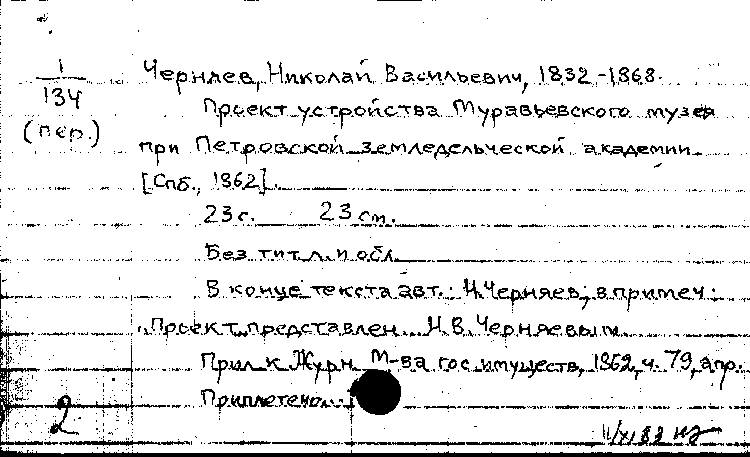 1
134
(пер.)
Черняев, Николай Васильевич, 1832-1868.
Проект устройства Муравьевского музея
при Петровской земледельческой академии
[Спб., 1862].
23 с. 23 см.
Без тит. л. и обл.
В конце текста авт.: Н. Черняев; в примеч:
"Проект представлен Н. В. Черняевым
Прил. к Журн. М-ва гос. имуществ, 1862, ч. 79, апр.
Приплетено
2
11/XI 83